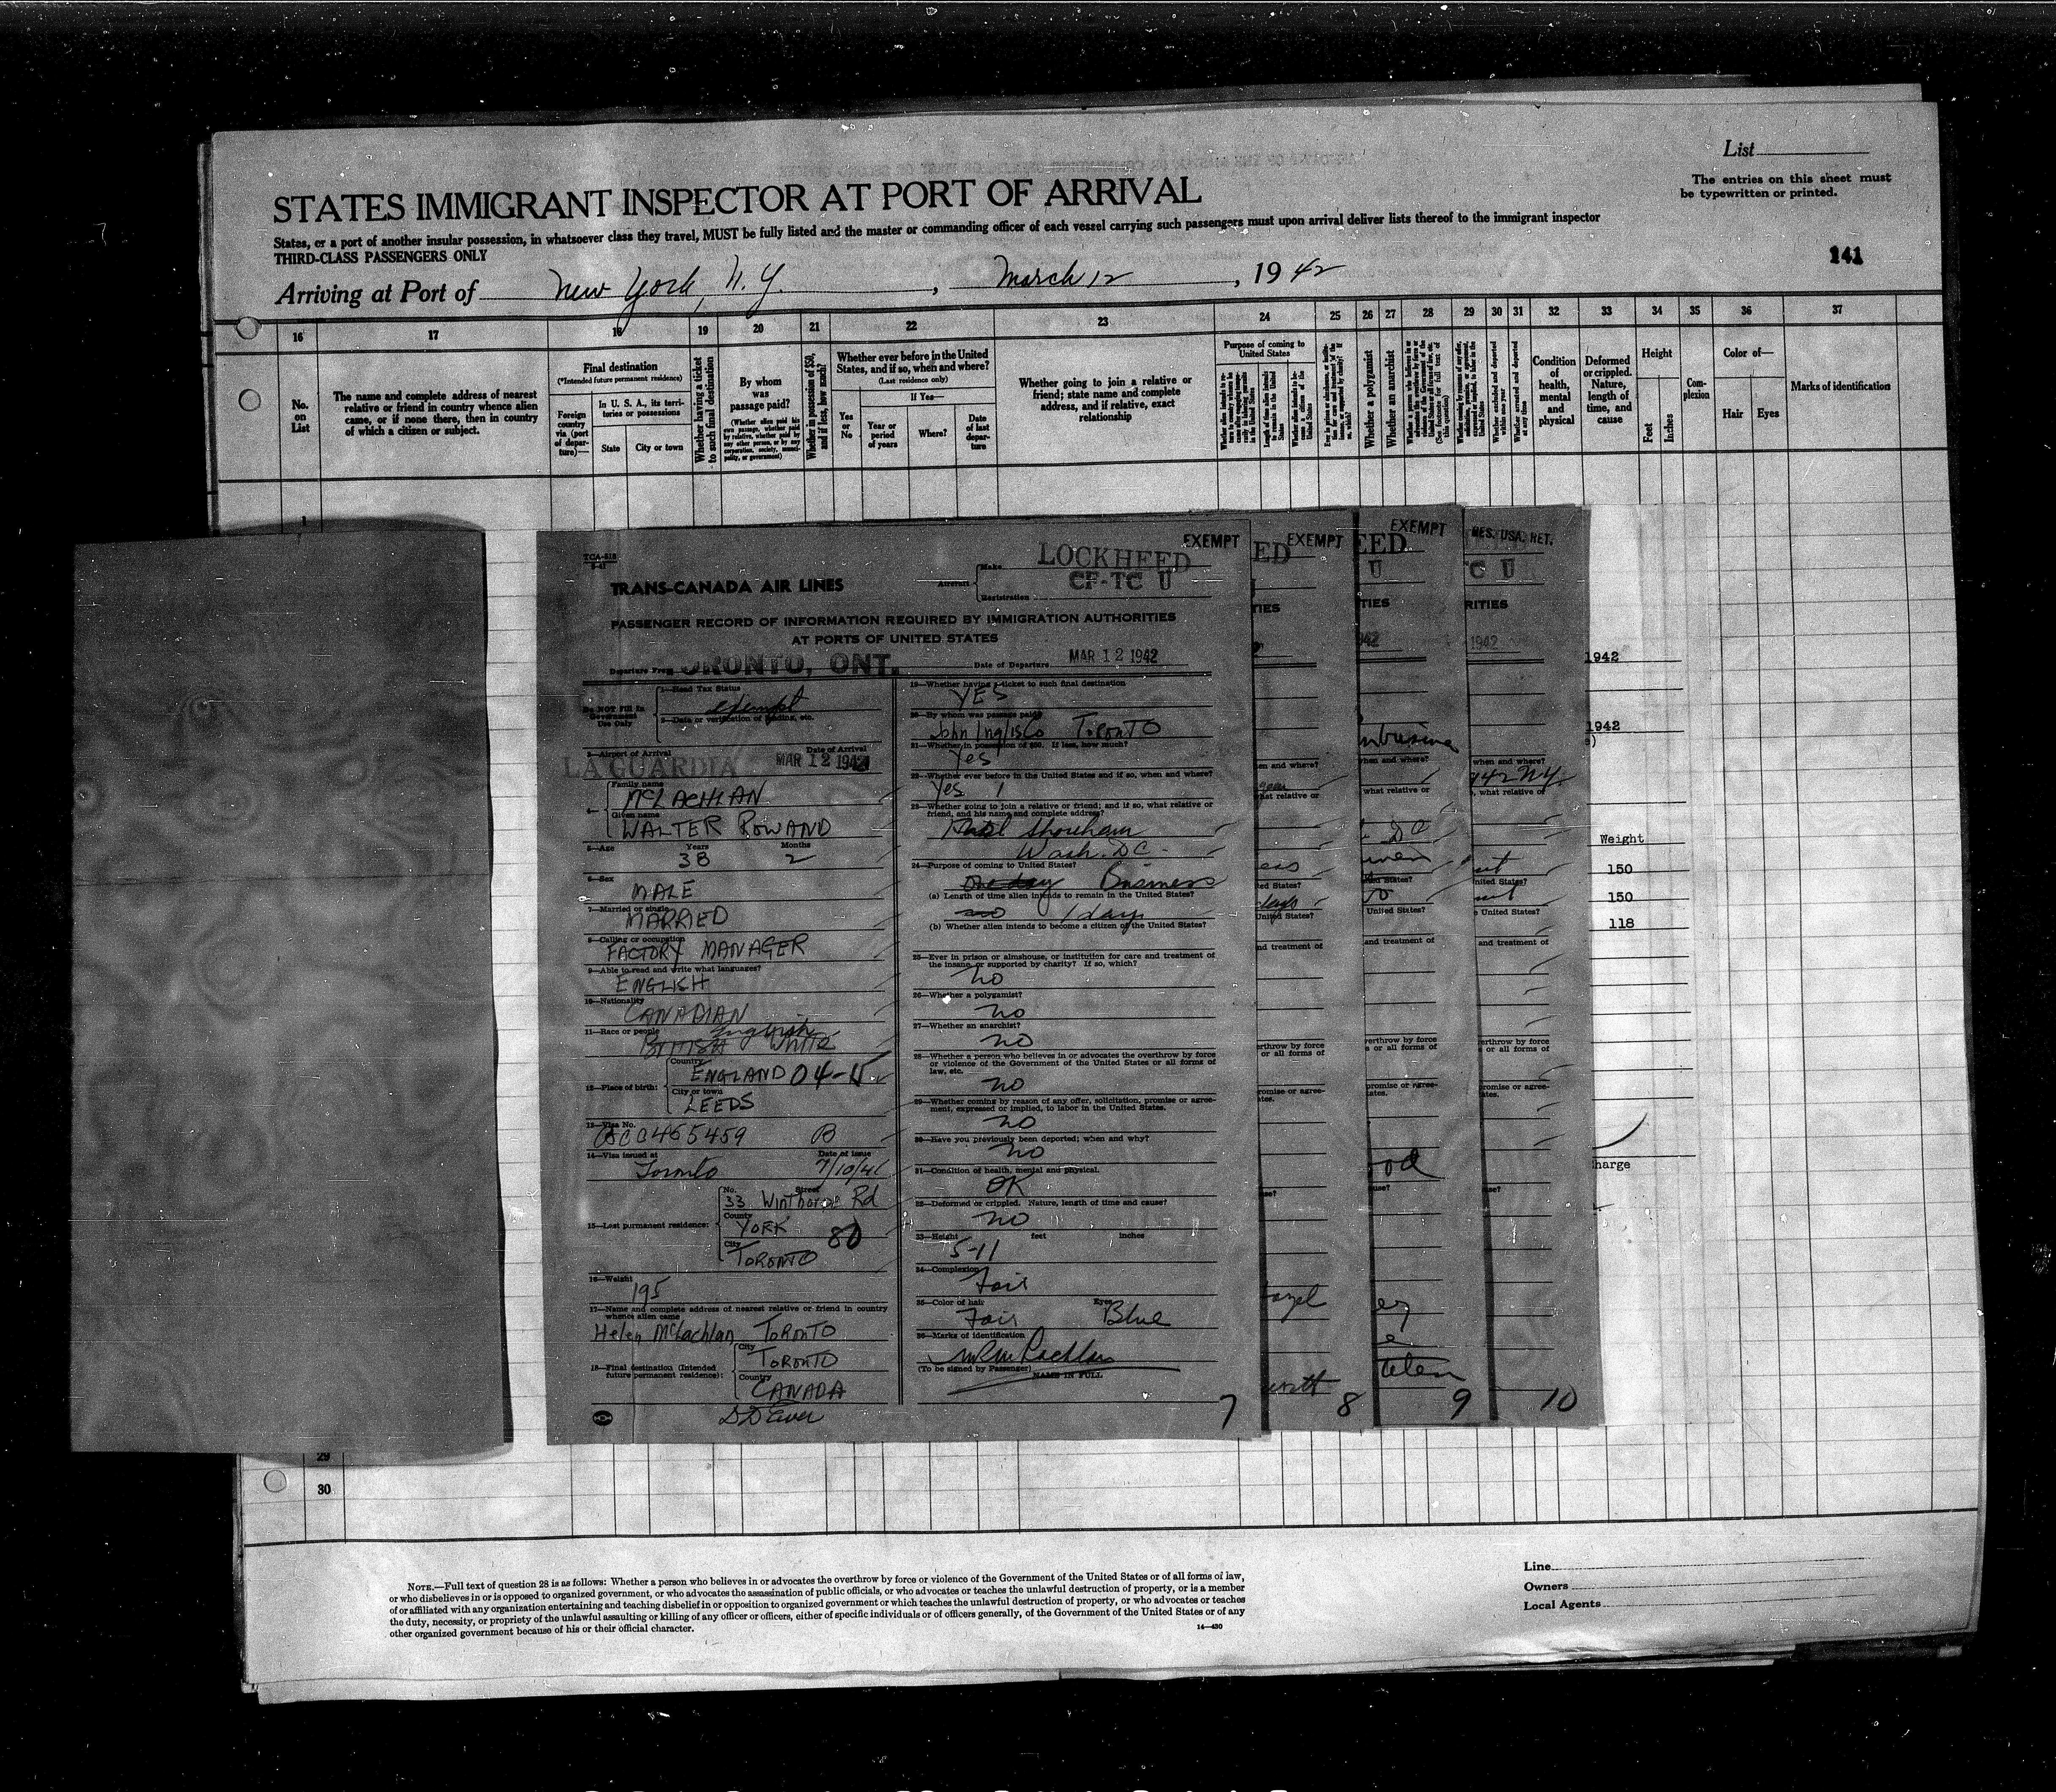 List
The entries on this sheet must
be typewritten or printed.
STATES IMMIGRANT INSPECTOR AT PORT OF ARRIVAL
States, or a port of another insular possession, in whatsoever class they travel, MUST be fully listed and the master or commanding officer of each vessel carrying such passengers must upon arrival deliver lists thereof to the immigrant inspector
THIRD-CLASS PASSENGERS ONLY
141
Arriving at Port of New York, N.Y. , March 12 , 1942
16 17 18 19 20 21 22 23 24 25 26 27 28 29 30 31 32 33 34 35 36 37
No. on List
The name and complete address of nearest
relative or friend in country whence alien
came, or if none there, then in country
of which a citizen or subject.
Final destination
(*Intended future permanent residence)
Foreign country via (port of departure)—
In U. S. A., its territories or possessions
State
City or town
Whether having a ticket to such final destination
By whom was passage paid?
(Whether alien paid his own passage, whether paid by relative, whether paid by any other person, or by any corporation, society, municipality, or government)
Whether in possession of $50, and if less, how much?
Whether ever before in the United
States, and if so, when and where?
(Last residence only)
Yes or No
If Yes—
Year or period of years
Where?
Date of last departure
Whether going to join a relative or
friend; state name and complete
address, and if relative, exact
relationship
Purpose of coming to
United States
Whether a polygamist
Whether an anarchist
Condition of health, mental and physical
Deformed or crippled. Nature, length of time, and cause
Height
Feet
Inches
Complexion
Color of—
Hair
Eyes
Marks of identification
TCA-818
TRANS-CANADA AIR LINES
EXEMPT
Aircraft
Make LOCKHEED
Registration CF-TC U
PASSENGER RECORD OF INFORMATION REQUIRED BY IMMIGRATION AUTHORITIES
AT PORTS OF UNITED STATES
Departure From ORONTO, ONT.
Date of Departure MAR 12 1942
Do NOT Fill In Government Use Only
1—Head Tax Status
exempt
2—Date or verification of landing, etc.
3—Airport of Arrival
Date of Arrival
LA GUARDIA MAR 12 1942
4—
Family name
McLACHLAN
Given name
WALTER ROWAND
5—Age Years Months
38 2
6—Sex
MALE
7—Married or single
MARRIED
8—Calling or occupation
FACTORY MANAGER
9—Able to read and write what languages?
ENGLISH
10—Nationality
CANADIAN
11—Race or people
English
BRITISH White
12—Place of birth:
Country
ENGLAND
City or town
LEEDS
13—Visa No.
14—Visa issued at
Date of Issue
Toronto
15—Last permanent residence:
No. Street
33 Winthorpe Rd
County
YORK 80
City
TORONTO
16—Weight
195
17—Name and complete address of nearest relative or friend in country
whence alien came
Helen McLachlan, TORONTO
18—Final destination (Intended
future permanent residence):
City
TORONTO
Country
CANADA
19—Whether having a ticket to such final destination
YES
20—By whom was passage paid?
John Inglis Co TORONTO
21—Whether in possession of $50. If less, how much?
Yes
22—Whether ever before in the United States and if so, when and where?
Yes
23—Whether going to join a relative or friend; and if so, what relative or
friend, and his name and complete address?
Hotel Shoreham
Wash. D.C.
24—Purpose of coming to United States?
One day Business
(a) Length of time alien intends to remain in the United States?
no 1 day
(b) Whether alien intends to become a citizen of the United States?
25—Ever in prison or almshouse, or institution for care and treatment of
the insane or supported by charity? If so, which?
no
26—Whether a polygamist?
no
27—Whether an anarchist?
no
28—Whether a person who believes in or advocates the overthrow by force
or violence of the Government of the United States or all forms of
law, etc.
no
29—Whether coming by reason of any offer, solicitation, promise or agree-
ment, expressed or implied, to labor in the United States.
no
30—Have you previously been deported; when and why?
no
31—Condition of health, mental and physical.
OK
32—Deformed or crippled. Nature, length of time and cause?
no
33—Height feet inches
5-11
34—Complexion
Fair
35—Color of hair Eyes
Fair Blue
36—Marks of identification
(To be signed by Passenger)
NAME IN FULL
7
EXEMPT
8
EXEMPT
9
RES. USA. RET.
10
1942
1942
Weight
150
150
118
29
30
NOTE.—Full text of question 28 is as follows: Whether a person who believes in or advocates the overthrow by force or violence of the Government of the United States or of all forms of law,
or who disbelieves in or is opposed to organized government, or who advocates the assassination of public officials, or who advocates or teaches the unlawful destruction of property, or is a member
of or affiliated with any organization entertaining and teaching disbelief in or opposition to organized government or which teaches the unlawful destruction of property, or who advocates or teaches
the duty, necessity, or propriety of the unlawful assaulting or killing of any officer or officers, either of specific individuals or of officers generally, of the Government of the United States or of any
other organized government because of his or their official character.
14—430
Line
Owners
Local Agents